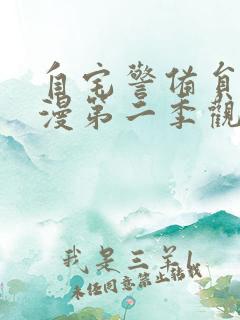 自宅警備員
漫第二季觀
我是三羊l
未经同意禁止转载